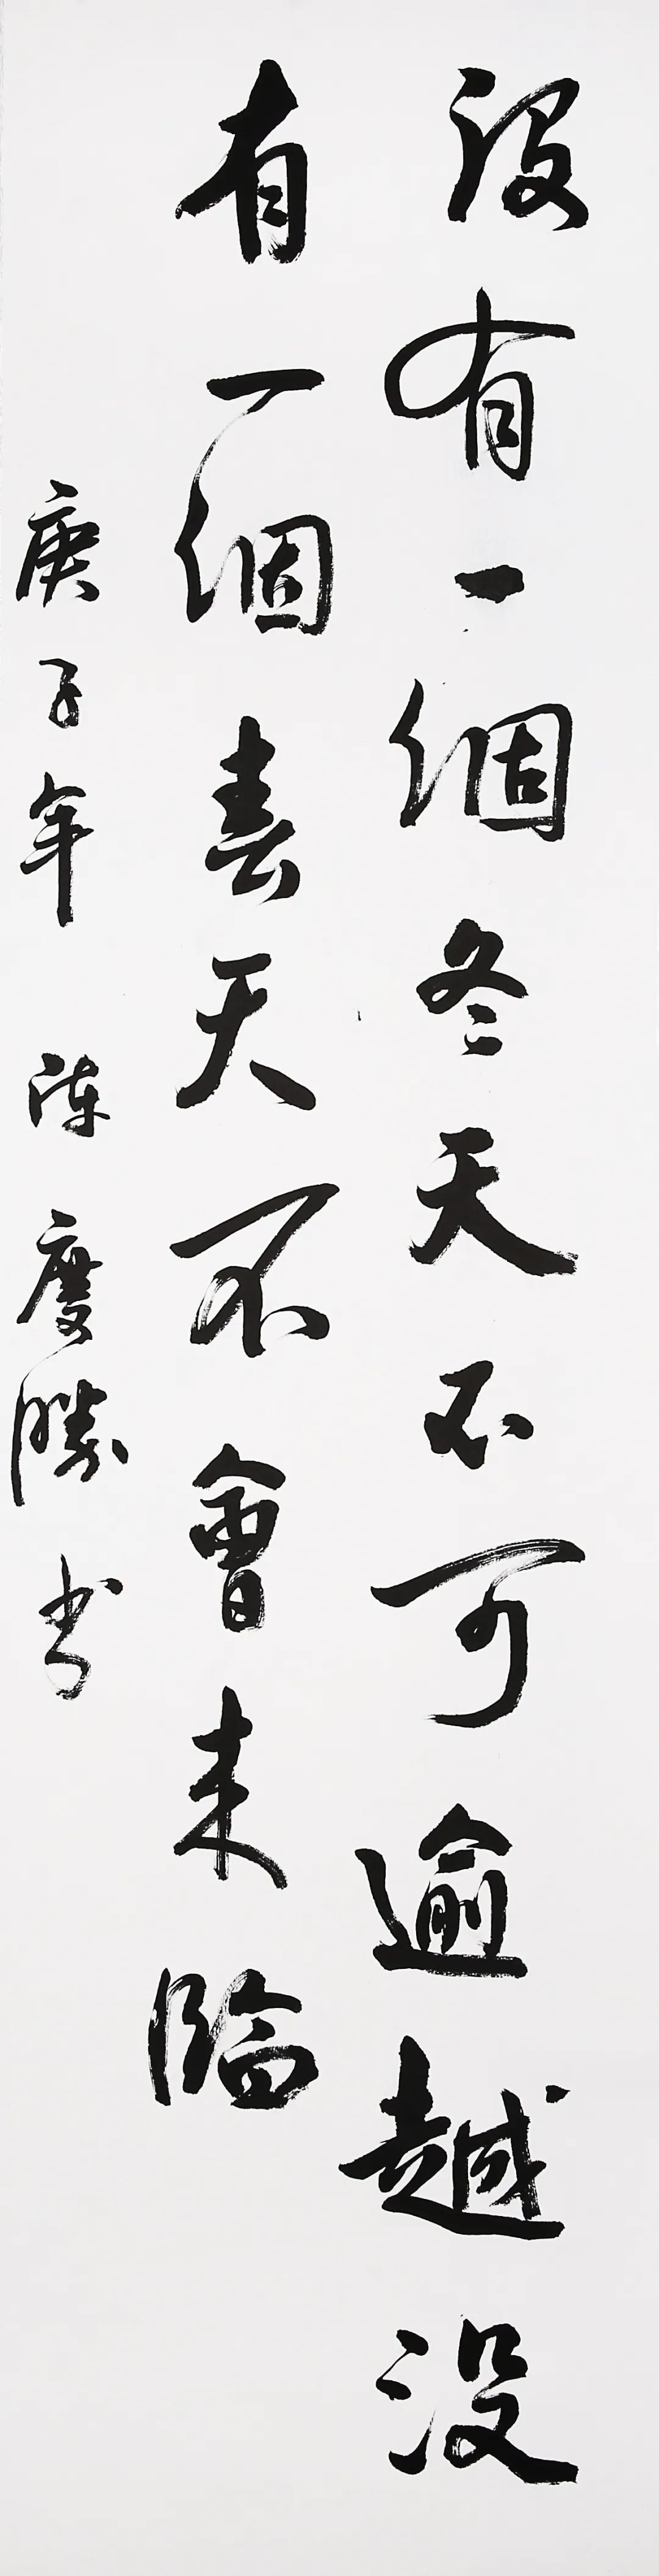 没有一個冬天不可逾越没
有一個春天不會来臨
庚子年 陳慶勝书